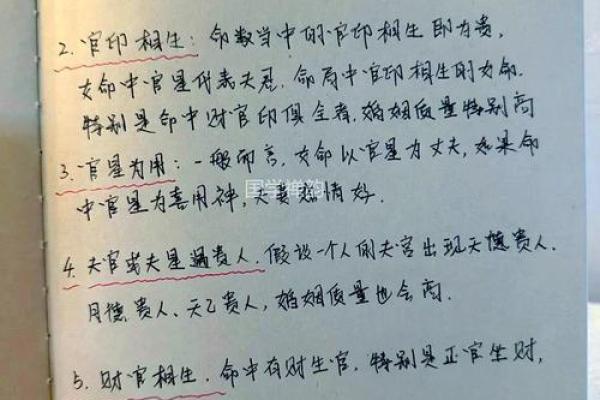 2. 官印相生：命数当中的官印相生即为贵,
女命中官星代表夫君. 命局中官印相生的女命.
特别是命中财官印俱全者, 婚姻质量特别高
3. 官星为用：一般而言, 女命以官星为丈夫, 如果命
中官星为喜用神, 夫妻感情好.
国学禅韵
4. 夫宫或夫星遇贵人. 假设一个人的夫宫出现天德贵人.
月德贵人、天乙贵人, 婚姻质量也会高.
5. 财官相生. 命中有财生官. 特别是正官坐财,